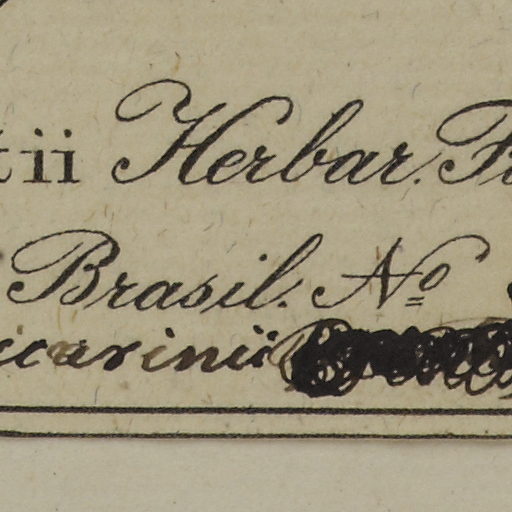 tii Herbar. Fl
Brasil. No
carinii